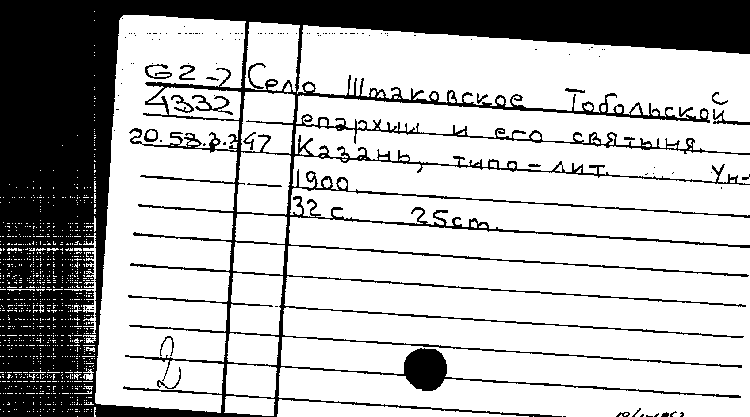 G2-7 Село Штаковское Тобольской С
4332 епархии и его святыня.
20.58.2.247 Казань, типо=лит. Ун-
1900
32 с. 25cm.
2